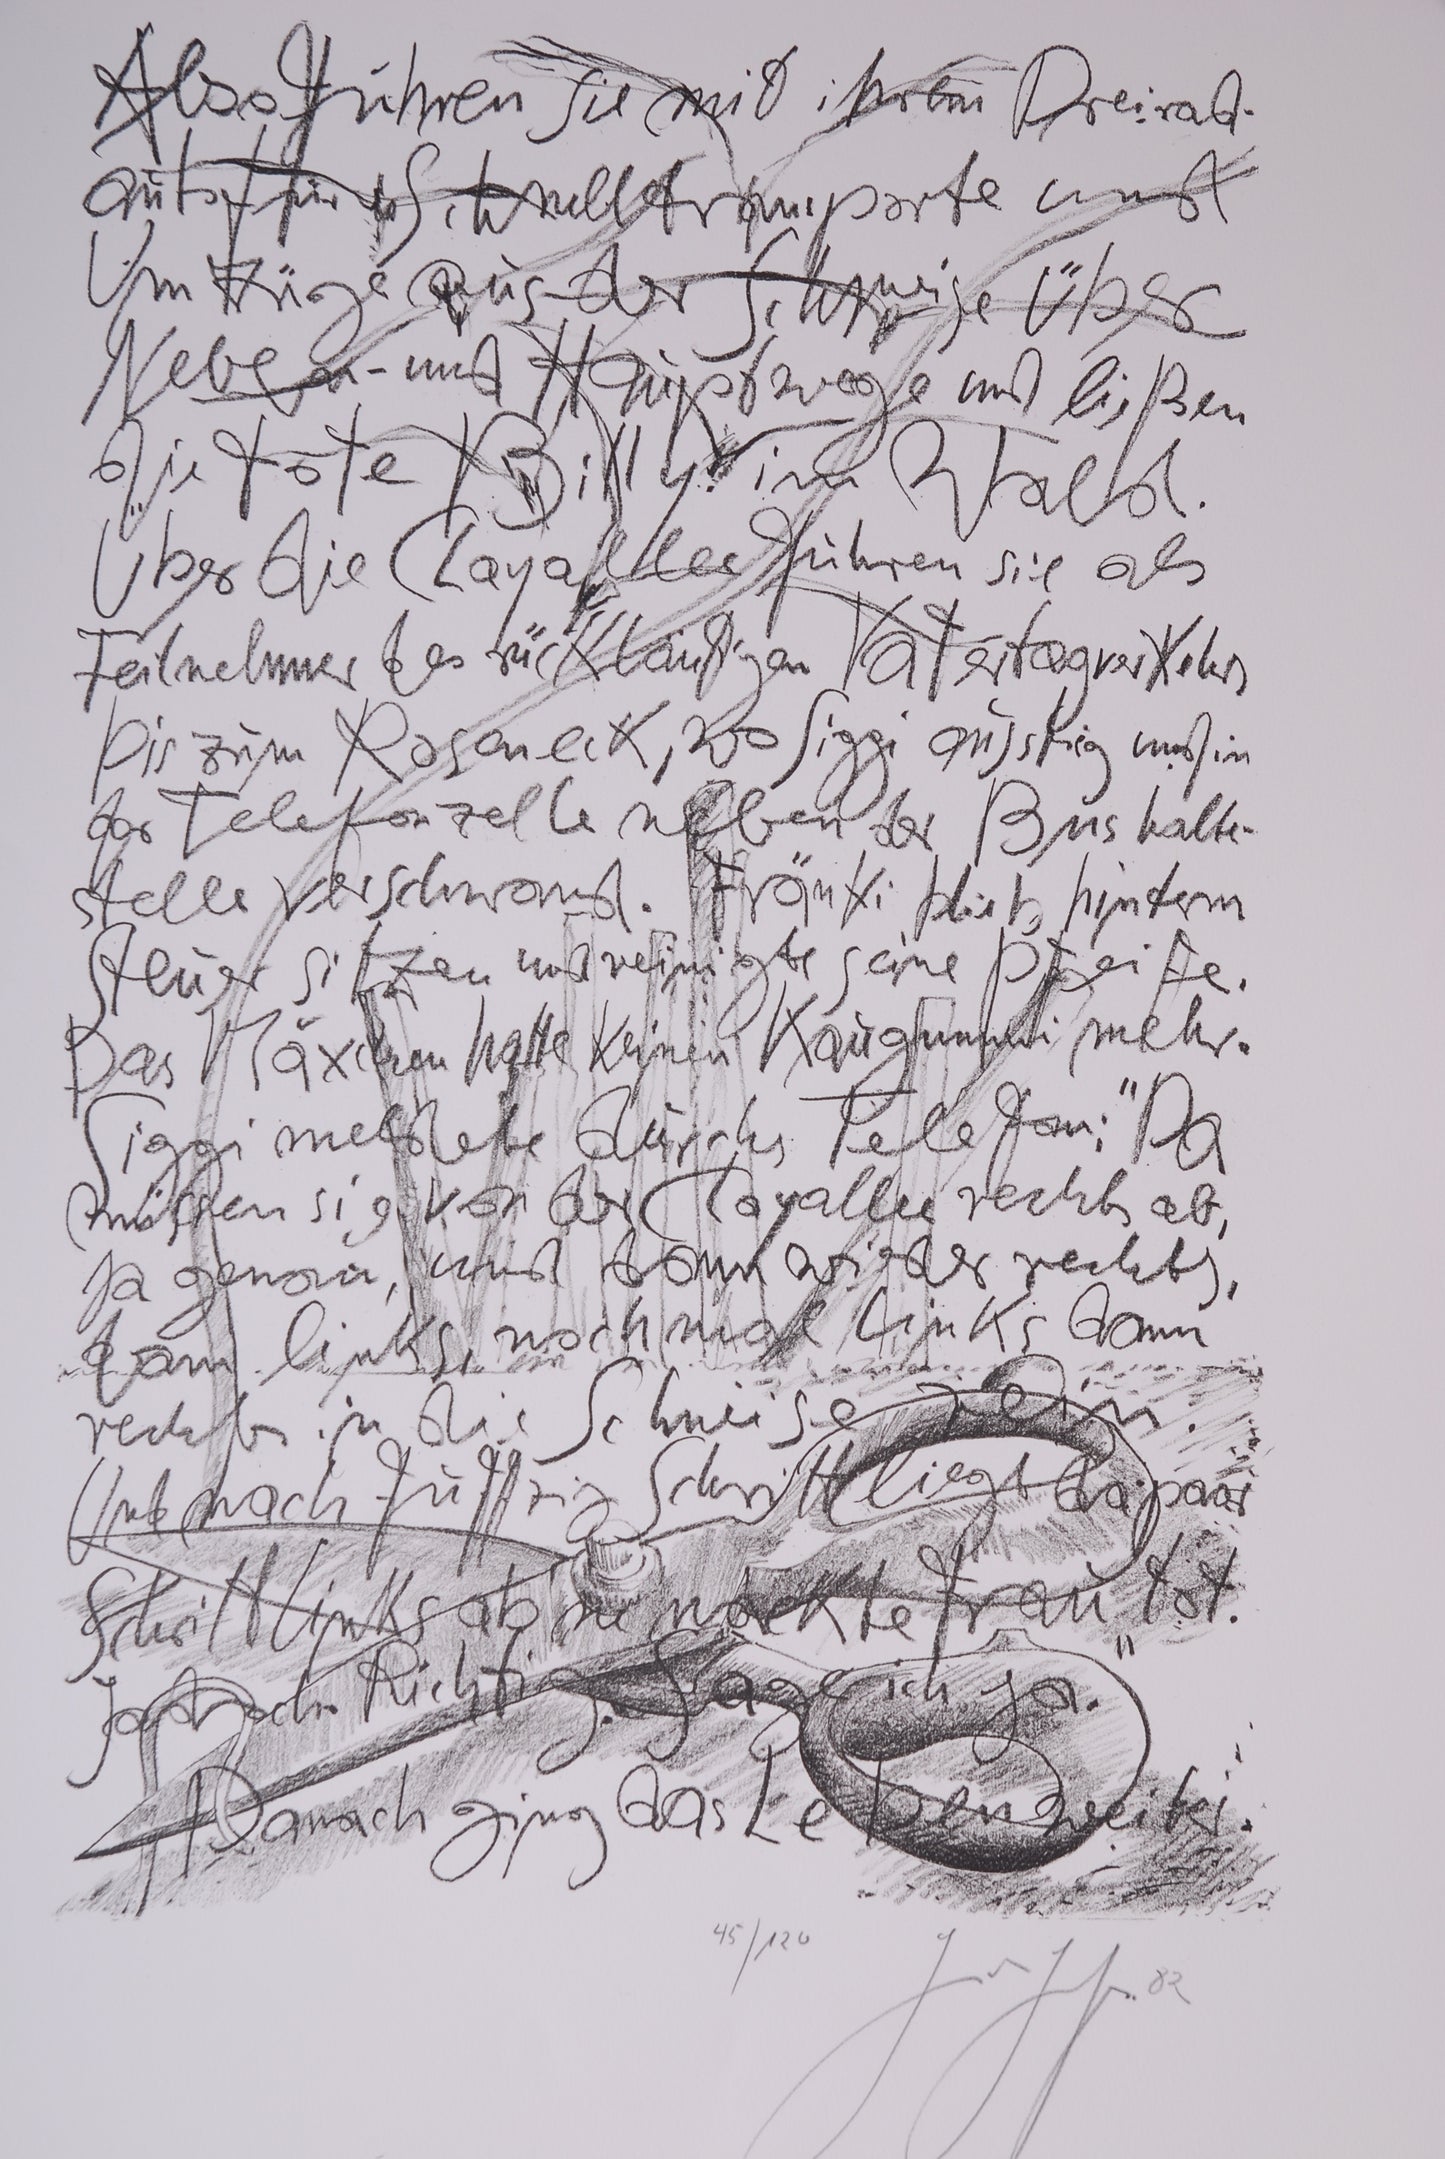 Also führen sie mit ihrem Dreirad-
auto für Schnelltransporte und
Umzüge aus der Schneise über
Neben- und Hauptwege und ließen
die tote Billy im Wald.
Über die Clayallee fuhren sie als
Teilnehmer des rückläufigen Vatertagverkehrs
bis zum Roseneck, wo Siggi ausstieg und in
der Telefonzelle neben der Bushalte-
stelle verschwand. Fränki blieb hinterm
Steuer sitzen und reinigte seine Pfeife.
Das Mäxchen hatte keinen Kaugummi mehr.
Siggi meldete durchs Telefon: "Da
müssen sie von der Clayallee rechts ab,
ja genau, und dann wieder rechts,
dann links, nochmal links dann
rechts in die Schneise rein.
Und nach fuffzig Schritt liegt da paar
Schritt links ab ne nackte Frau tot.
Ja doch. Richtig. Sage ich ja."
Danach ging das Leben weiter.
45/120
82